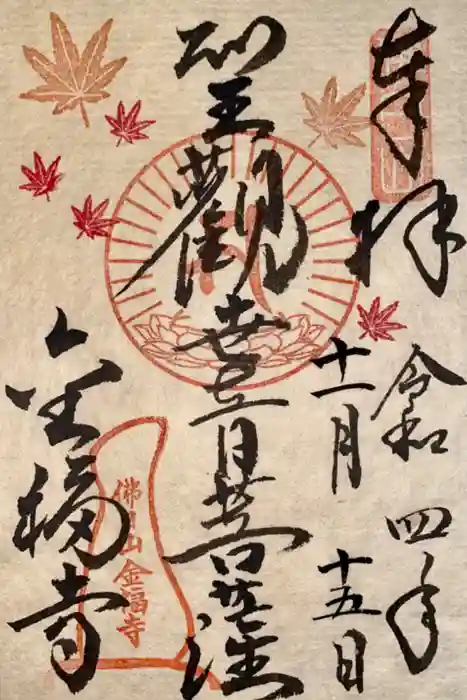 奉拝
令和四年
十一月
十五日
聖観世音菩薩
金福寺
佛日山
金福寺